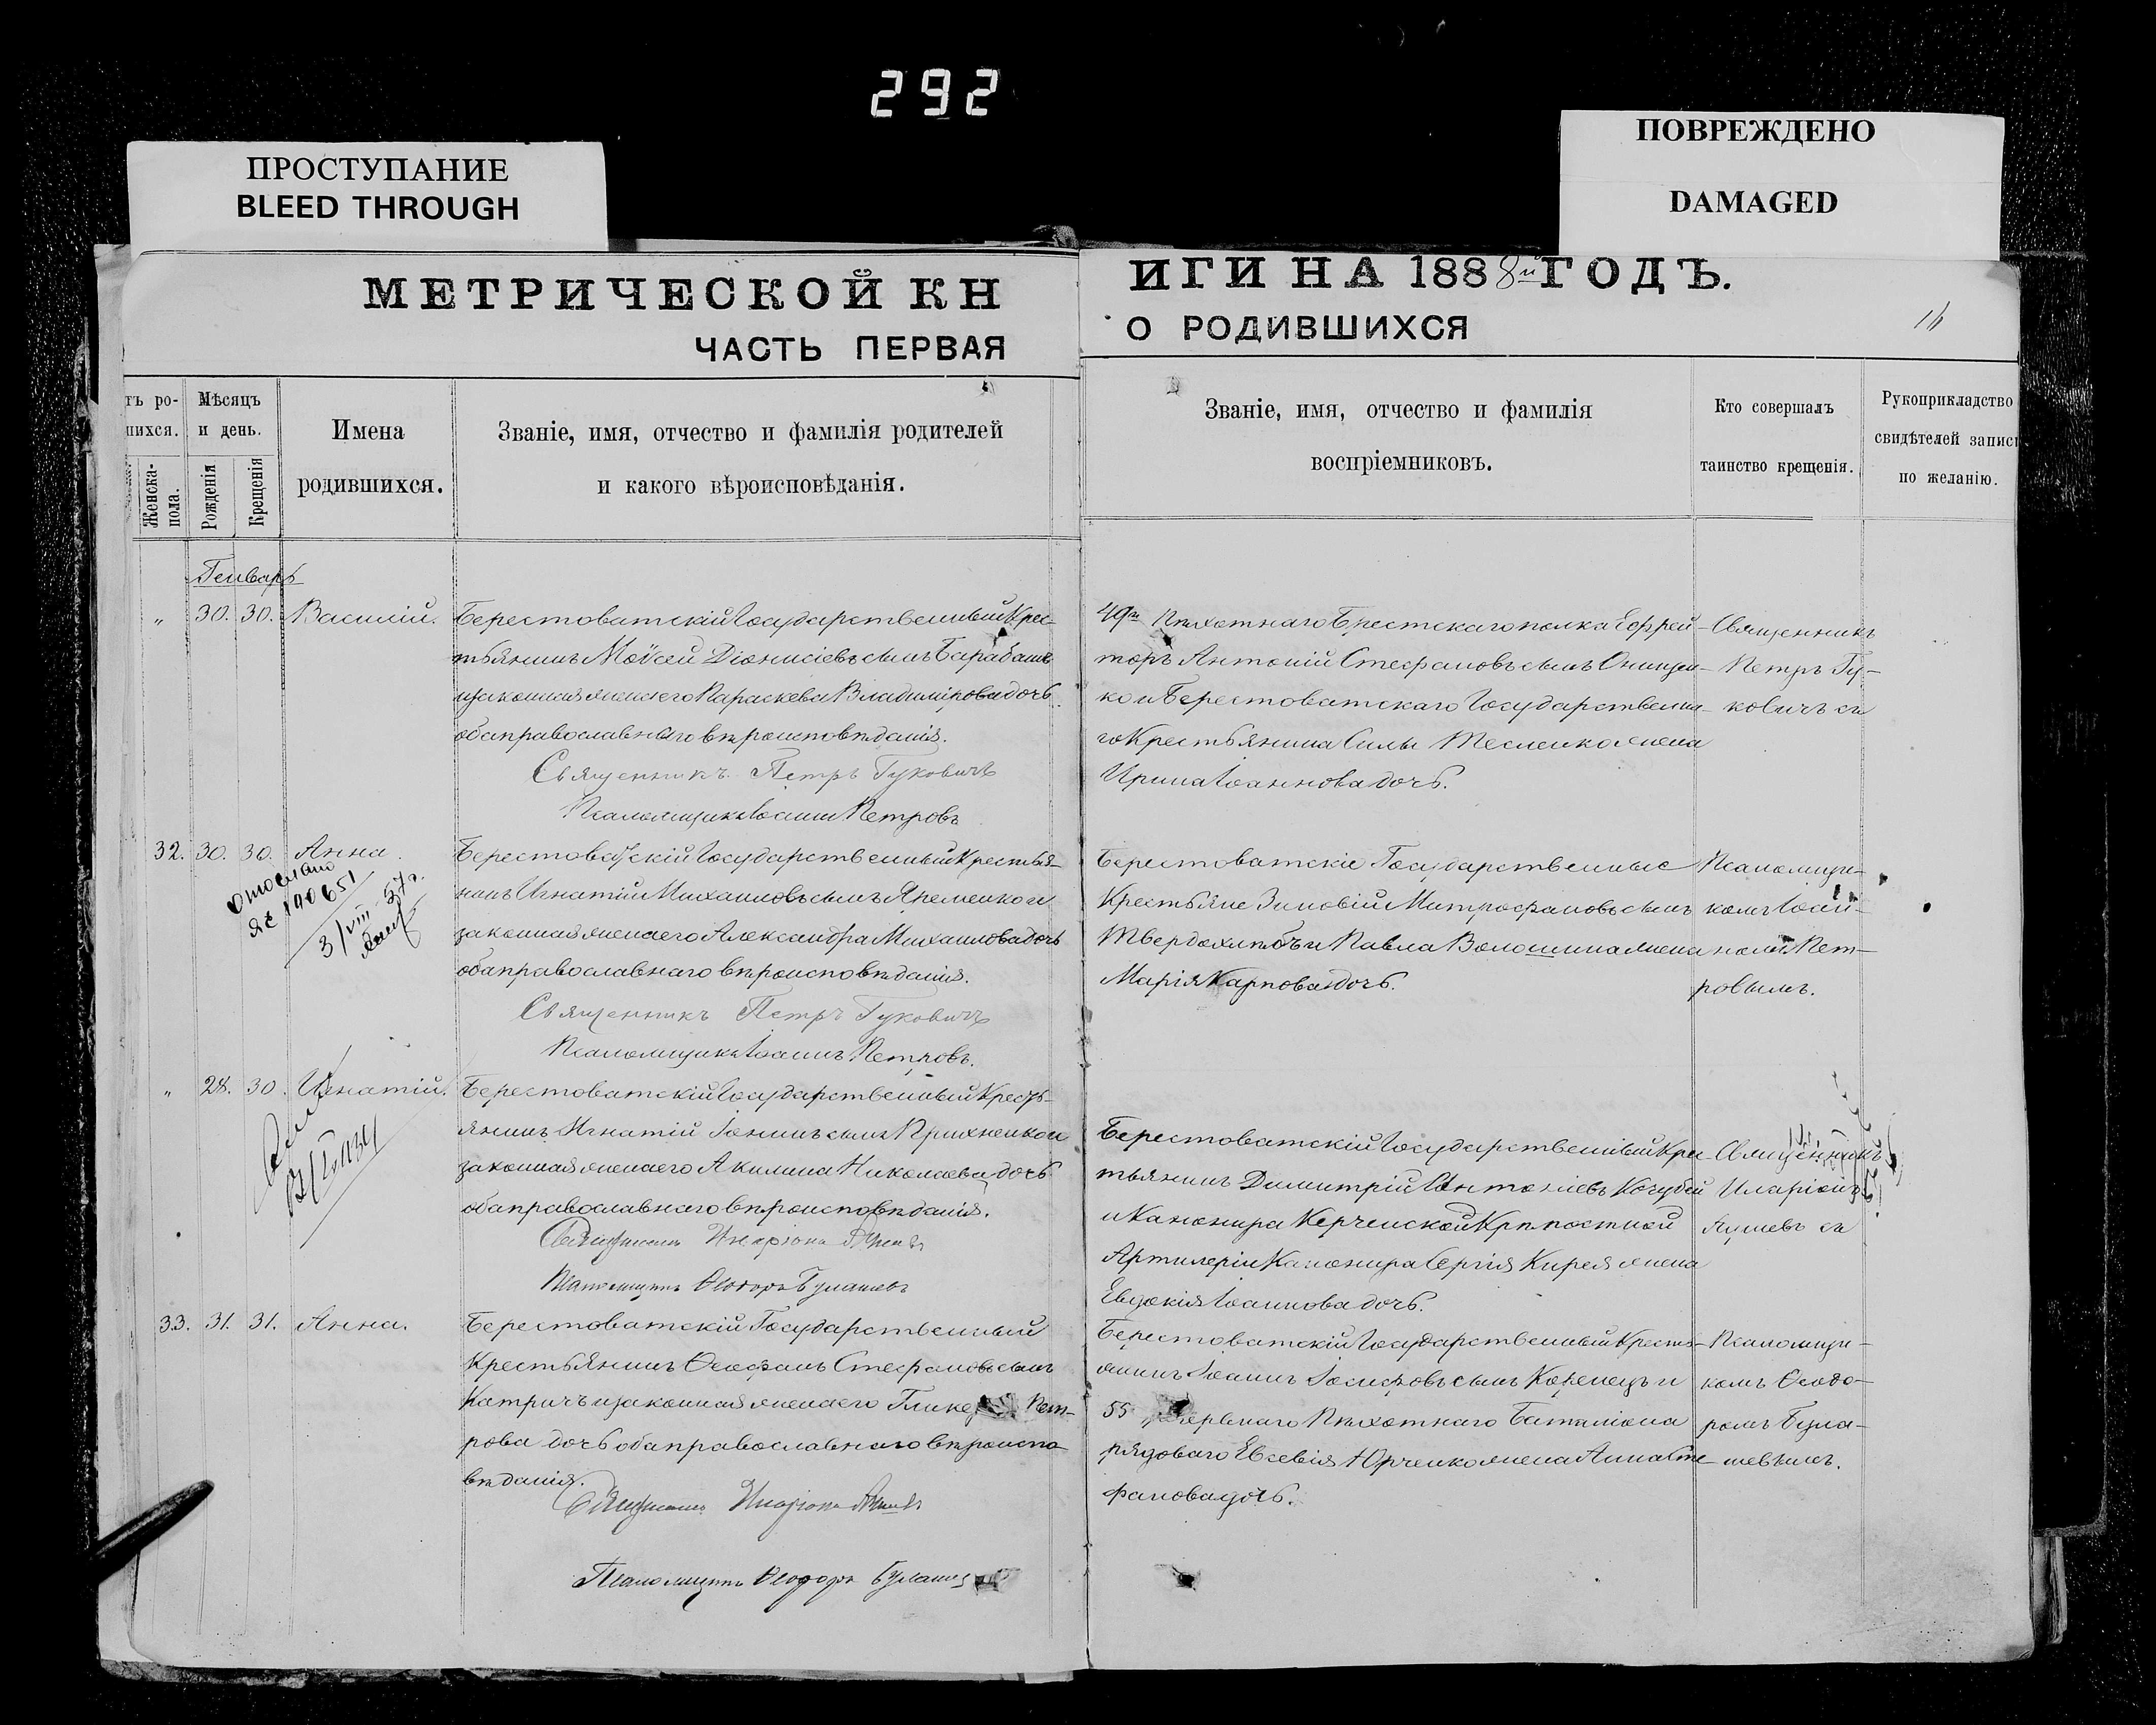 292
ПРОСТУПАНИЕ
BLEED THROUGH
ПОВРЕЖДЕНО
DAMAGED
МЕТРИЧЕСКОЙ КН
ИГИ НА 1888й ГОДЪ.
ЧАСТЬ ПЕРВАЯ
О РОДИВШИХСЯ
тъ ро-
шихся.
Женска-
пола.
Мѣсяцъ
и день.
Рожденія
Крещенія
Имена
родившихся.
Званіе, имя, отчество и фамилія родителей
и какого вѣроисповѣданія.
Званіе, имя, отчество и фамилія
воспріемниковъ.
Кто совершалъ
таинство крещенія.
Рукоприкладство
свидѣтелей записи
по желанію.
Генварь
" 30. 30. Василій.
Берестоватскій Государственный Крес-
тьянинъ Моѵсей Діонисіевъ сынъ Барабашъ
изаконная жена его Параскева Владимірова дочь
оба православнаго вѣроисповѣданія.
Священникъ Петръ Гуковичъ
Псаломщикъ Іоаннъ Петровъ
49го Пѣхотнаго Брестскаго полка Ефрей-
торъ Антоній Стефановъ сынъ Онищен-
ко и Берестоватскаго Государственна-
го Крестьянина Силы Тесленко жена
Ирина Іоаннова дочь.
Священникъ
Петръ Гу-
ковичъ съ
32. 30. 30. Анна.
Отослано
3/VIII 57 г.
Берестоватскій Государственный Крестья-
нинъ Игнатій Михаиловъ сынъ Яременко и
законная жена его Александра Михаилова дочь
оба православнаго вѣроисповѣданія.
Священникъ Петръ Гуковичъ
Псаломщикъ Іоаннъ Петровъ.
Берестоватскіе Государственные
Крестьяне Зиновій Митрофановъ сынъ
Твердохлѣбъ и Павла Волошина жена
Марія Карпова дочь.
Псаломщи-
комъ Іоан-
номъ Пет-
ровымъ.
" 28. 30. Игнатій.
Берестоватскій Государственный Кресть-
янинъ Игнатій Іоаннъ сынъ Прихненко и
законная жена его Акилина Николаева дочь
оба православнаго вѣроисповѣданія.
Псаломщикъ Ѳеодоръ Бумашевъ
Берестоватскій Государственный Крес
тьянинъ Димитрій Антоніевъ Кочубей
и Канонира Керченской Крѣпостной
Артилеріи Канонира Сергія Кирея жена
Евдокія Іоаннова дочь.
Священникъ
Иларіонъ
съ
33. 31. 31. Анна.
Берестоватскій Государственный
Крестьянинъ Ѳеофанъ Стефановъ сынъ
Катричъ изаконная жена его Глике Пет-
рова дочь оба православнаго вѣроиспо-
вѣданія.
Псаломщикъ Ѳеодоръ
Берестоватскій Государственный Кресть-
янинъ Іоаннъ Іосифовъ сынъ Коренецъ и
55 Пѣхотнаго Баталіона
рядоваго Евсевія Юрченко жена Анна Сте-
фанова дочь.
Псаломщи-
комъ Ѳеодо-
ромъ Бума-
шевымъ.